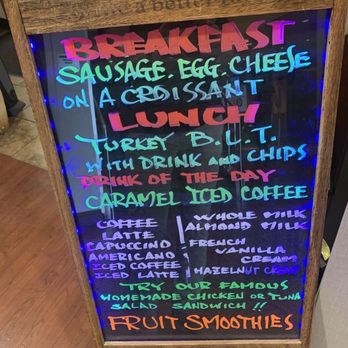 a better
BREAKFAST
SAUSAGE. EGG. CHEESE
ON A CROISSANT
LUNCH
TURKEY B.L.T.
WITH DRINK AND CHIPS
DRINK OF THE DAY
CARAMEL ICED COFFEE
COFFEE
LATTE
CAPUCCINO
AMERICANO
ICED COFFEE
ICED LATTE
WHOLE MILK
ALMOND MILK
FRENCH
VANILLA
CREAM
HAZELNUT CREAM
TRY OUR FAMOUS
HOMEMADE CHICKEN OR TUNA
SALAD SANDWICH !!
FRUIT SMOOTHIES